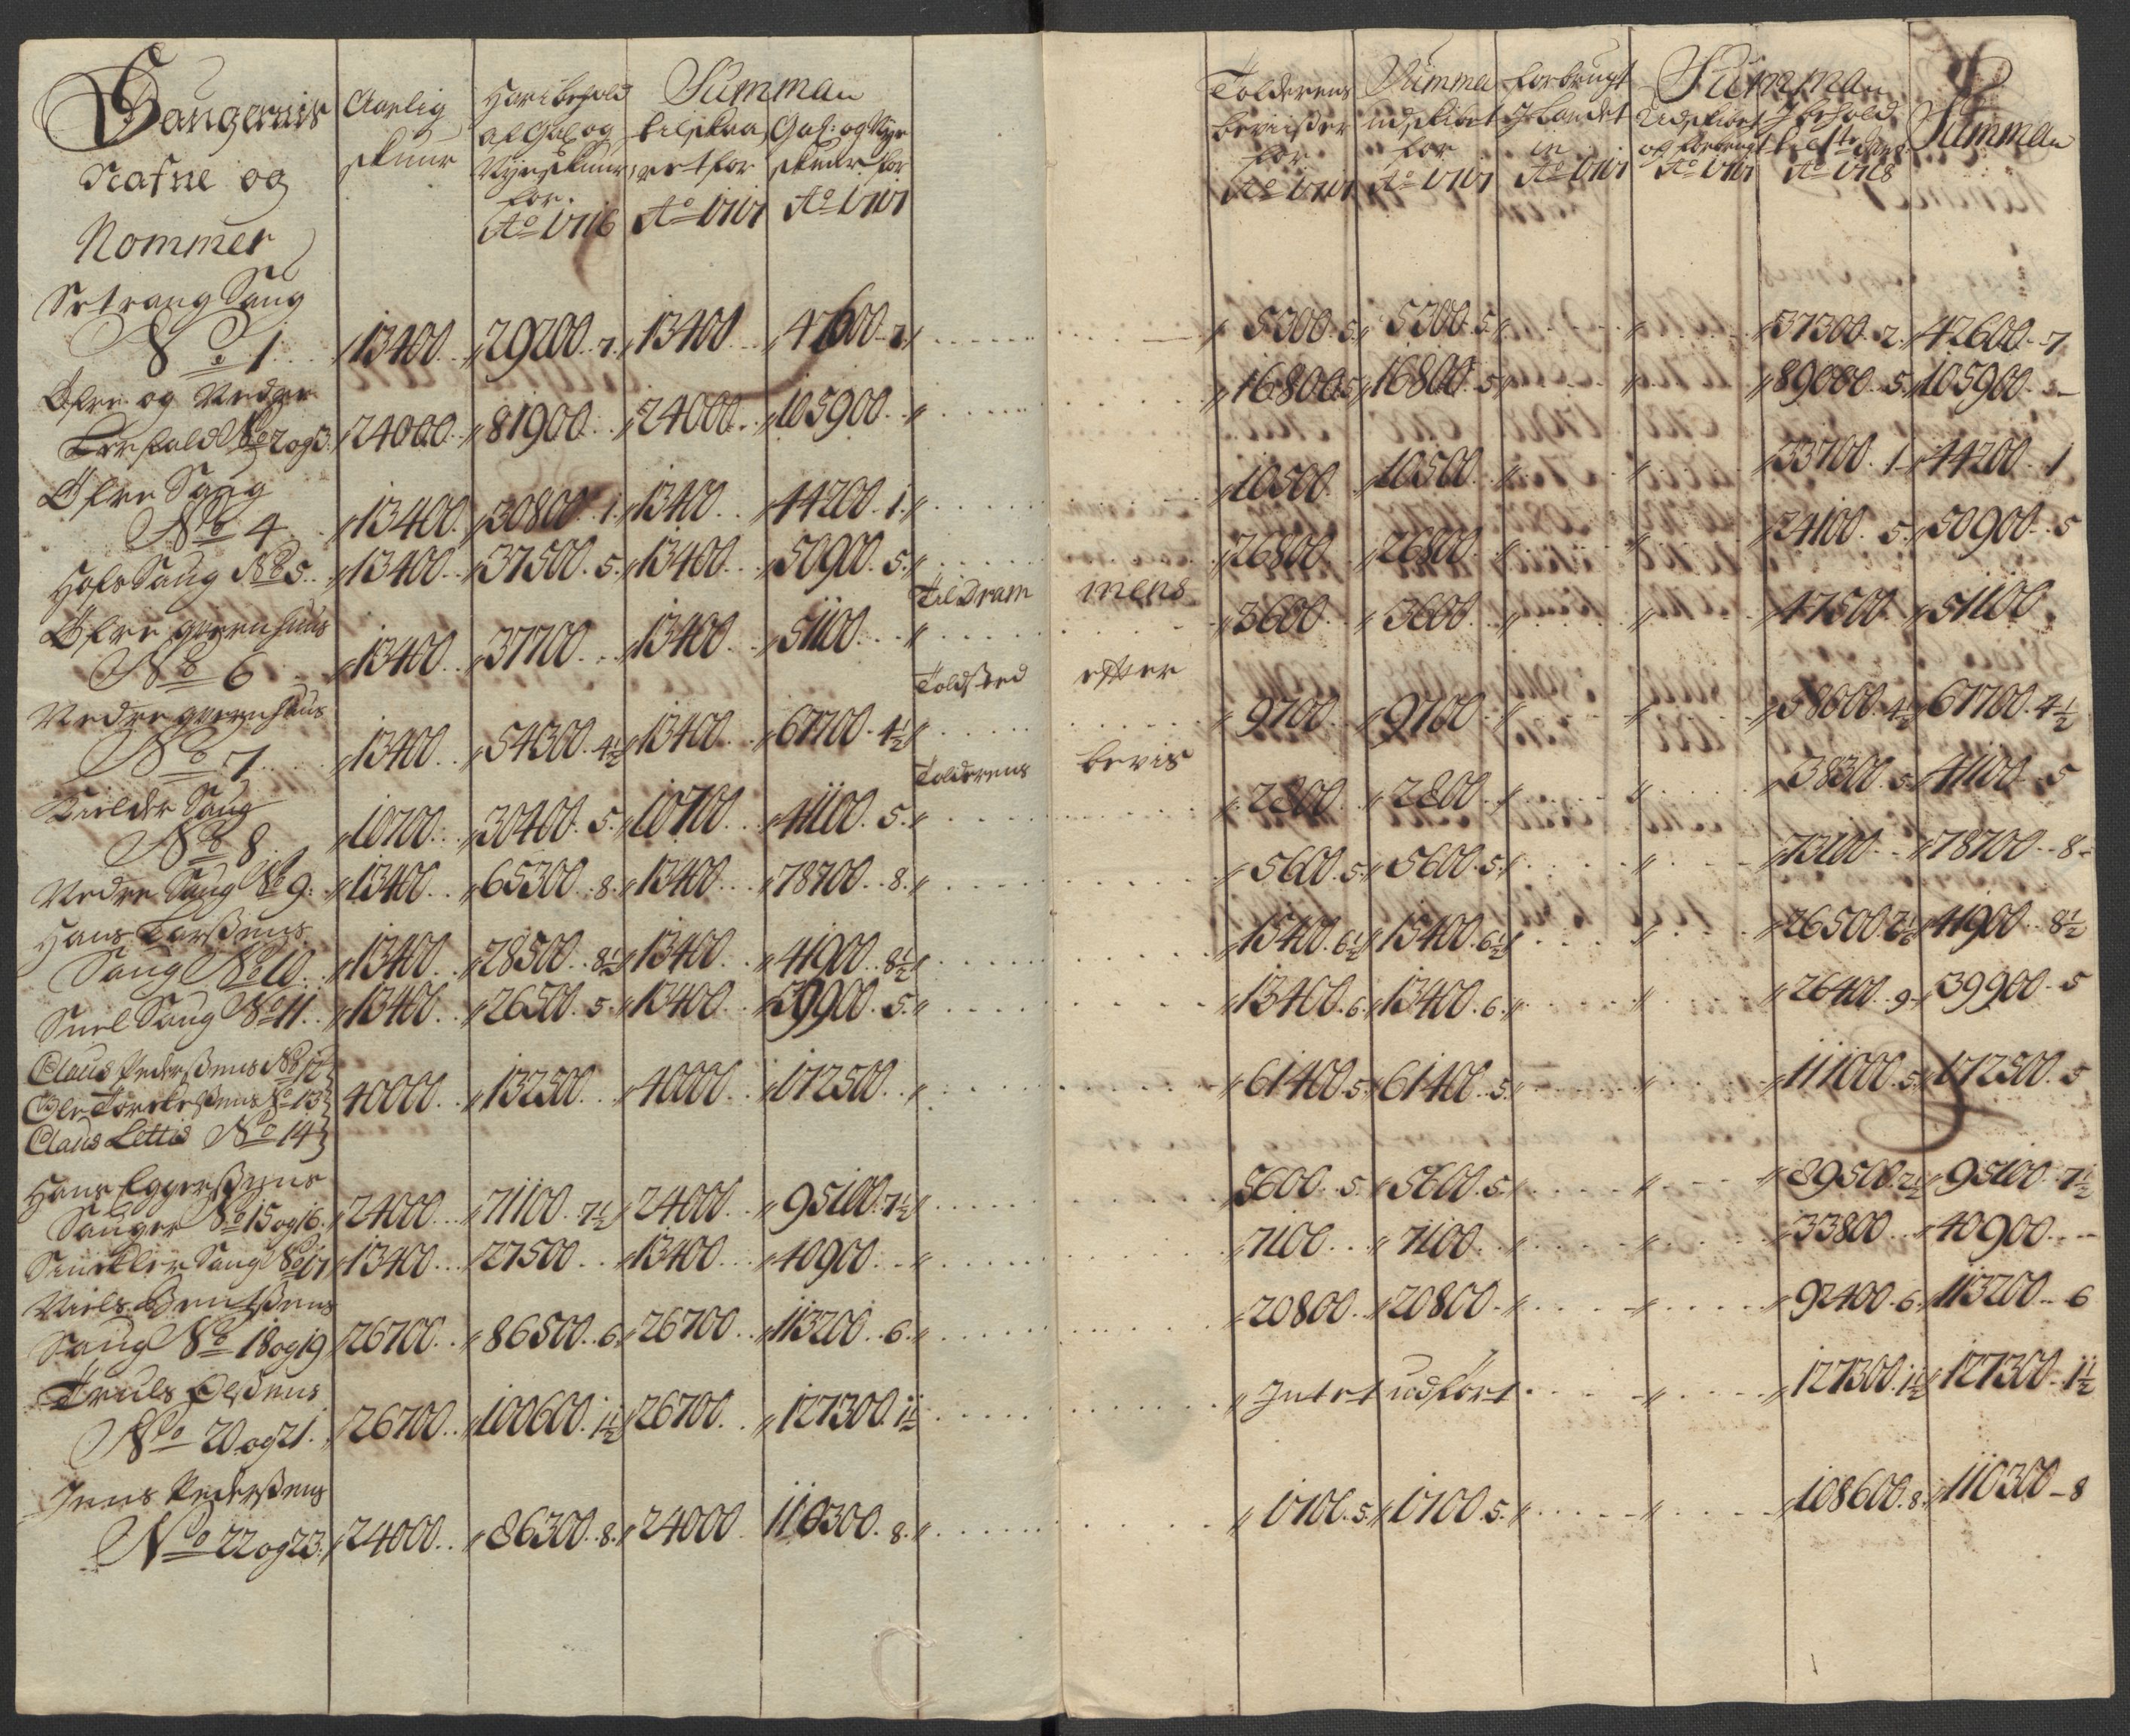 Saugernis Nafne og Nommer | Aarlig skuur | Har i behold af Gal og Nyeskuur, for Ao 1716 | Summan tilskaa, ret for Ao 1717 | Gal: og Nye skuer for Ao 1717 | | Tolderens bevißer for Ao 1717 | Summa udskibet for Ao 1717 | forbrugt J Landet in Ao 1717 | Summan Udskibet og forbrugt Ao 1717 | J behold til Ao 1718 | Summan
Setrang Saug
No 1 | 13400 | 29200 - 7 | 13400 | 42600 - 7 | | 5300 - 5 | 5300 - 5 | | | 37300 - 2 | 42600 - 7
Øfre og Nedre
No 2 og 3 | 24000 | 81900 | 24000 | 105900 | | 16800 5 | 16800 - 5 | | | 89000 - 5 | 105900 -
Øfre Saug
No 4 | 13400 | 30800 - 1 | 13400 | 44200 - 1 | | 10500 | 10500 | | | 33700 - 1 | 44200 - 1
Hofs Saug No 5 | 13400 | 37500 - 5 | 13400 | 50900 - 5 | | 26800 | 26800 | | | 24100 - 5 | 50900 - 5
Til Drammens
Øfre qvernhuus
No 6 | 13400 | 37700 | 13400 | 51100 | | 3600 | 3600 | | | 47500 | 51100
Toldsted efter
Nedre qvernhuus
No 7 | 13400 | 54300 - 4½ | 13400 | 67700 - 4½ | | 9700 | 9700 | | | 58000 - 4½ | 67700 - 4½
Tolderens bevis
Saug
No 8 | 10700 | 30400 - 5 | 10700 | 41100 - 5 | | 2800 | 2800 | | | 38300 - 5 | 41100 - 5
Nedre Saug No 9 | 13400 | 65300 - 8 | 13400 | 78700 - 8 | | 5600 - 5 | 5600 - 5 | | | 73100 | 78700 - 8
Hans Larßens
Saug No 10 | 13400 | 28500 - 8½ | 13400 | 41900 - 8½ | | 15400 - 6½ | 15400 - 6½ | | | 26500 | 41900 - 8½
Saug No 11 | 13400 | 26500 - 5 | 13400 | 39900 - 5 | | 13400 - 6 | 13400 - 6 | | | 26400 - 9 | 39900 - 5
Claus Pederßens No 12
Ole No 13 | 40000 | 132500 | 40000 | 172500 | | 61400 - 5 | 61400 - 5 | | | 111000 - 5 | 172500 - 5
Claus Lettis No 14
Hans Eggerßens
Sauger No 15 og 16 | 24000 | 71100 - 7½ | 24000 | 95100 - 7½ | | 5600 - 5 | 5600 - 5 | | | 89500 - 2½ | 95100 - 7½
Saug No 17 | 13400 | 27500 | 13400 | 40900 | | 7100 | 7100 | | | 33800 | 40900
Niels Bentßens
Saug No 18 og 19 | 26700 | 86500 - 6 | 26700 | 113200 - 6 | | 20800 | 20800 | | | 92400 - 6 | 113200 - 6
Truls Olßens
No 20 og 21 | 26700 | 100600 - 1½ | 26700 | 127300 - 1½ | | Intet udført | | | 127300 - 1½ | 127300 - 1½
Jens Pederßens
No 22 og 23 | 24000 | 86300 - 8 | 24000 | 110300 - 8 | | 1700 - 5 | 1700 - 5 | | | 108600 - 8 | 110300 - 8